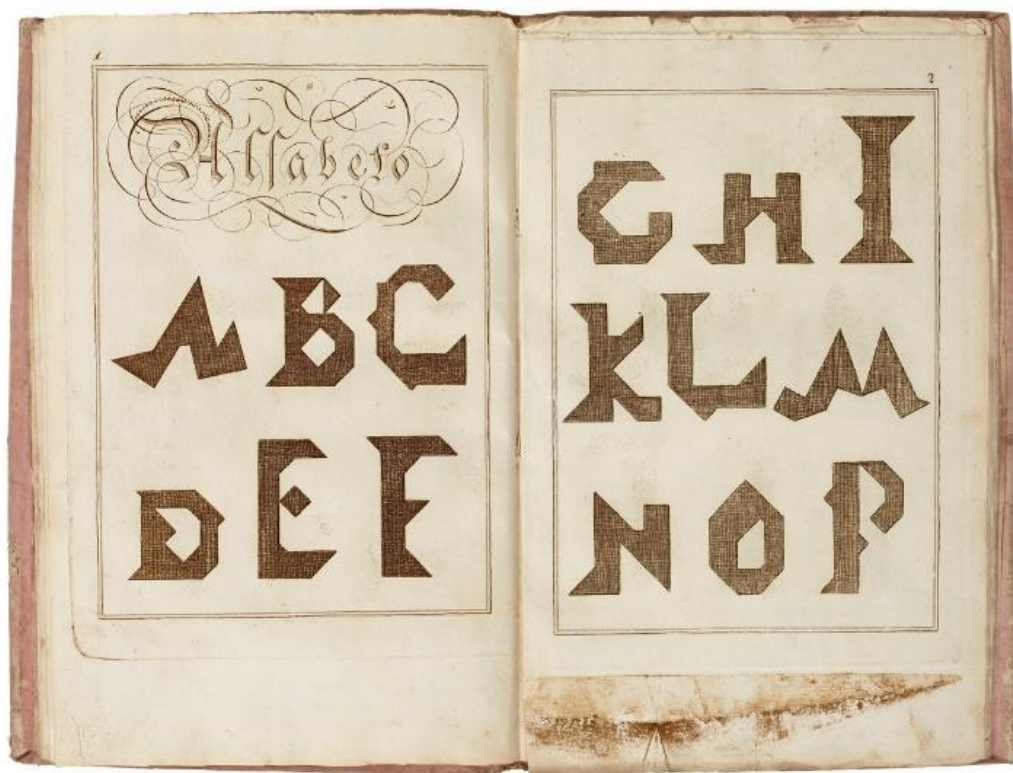 1
Alfabeto
A B C
D E F
2
G H I
K L M
N O P